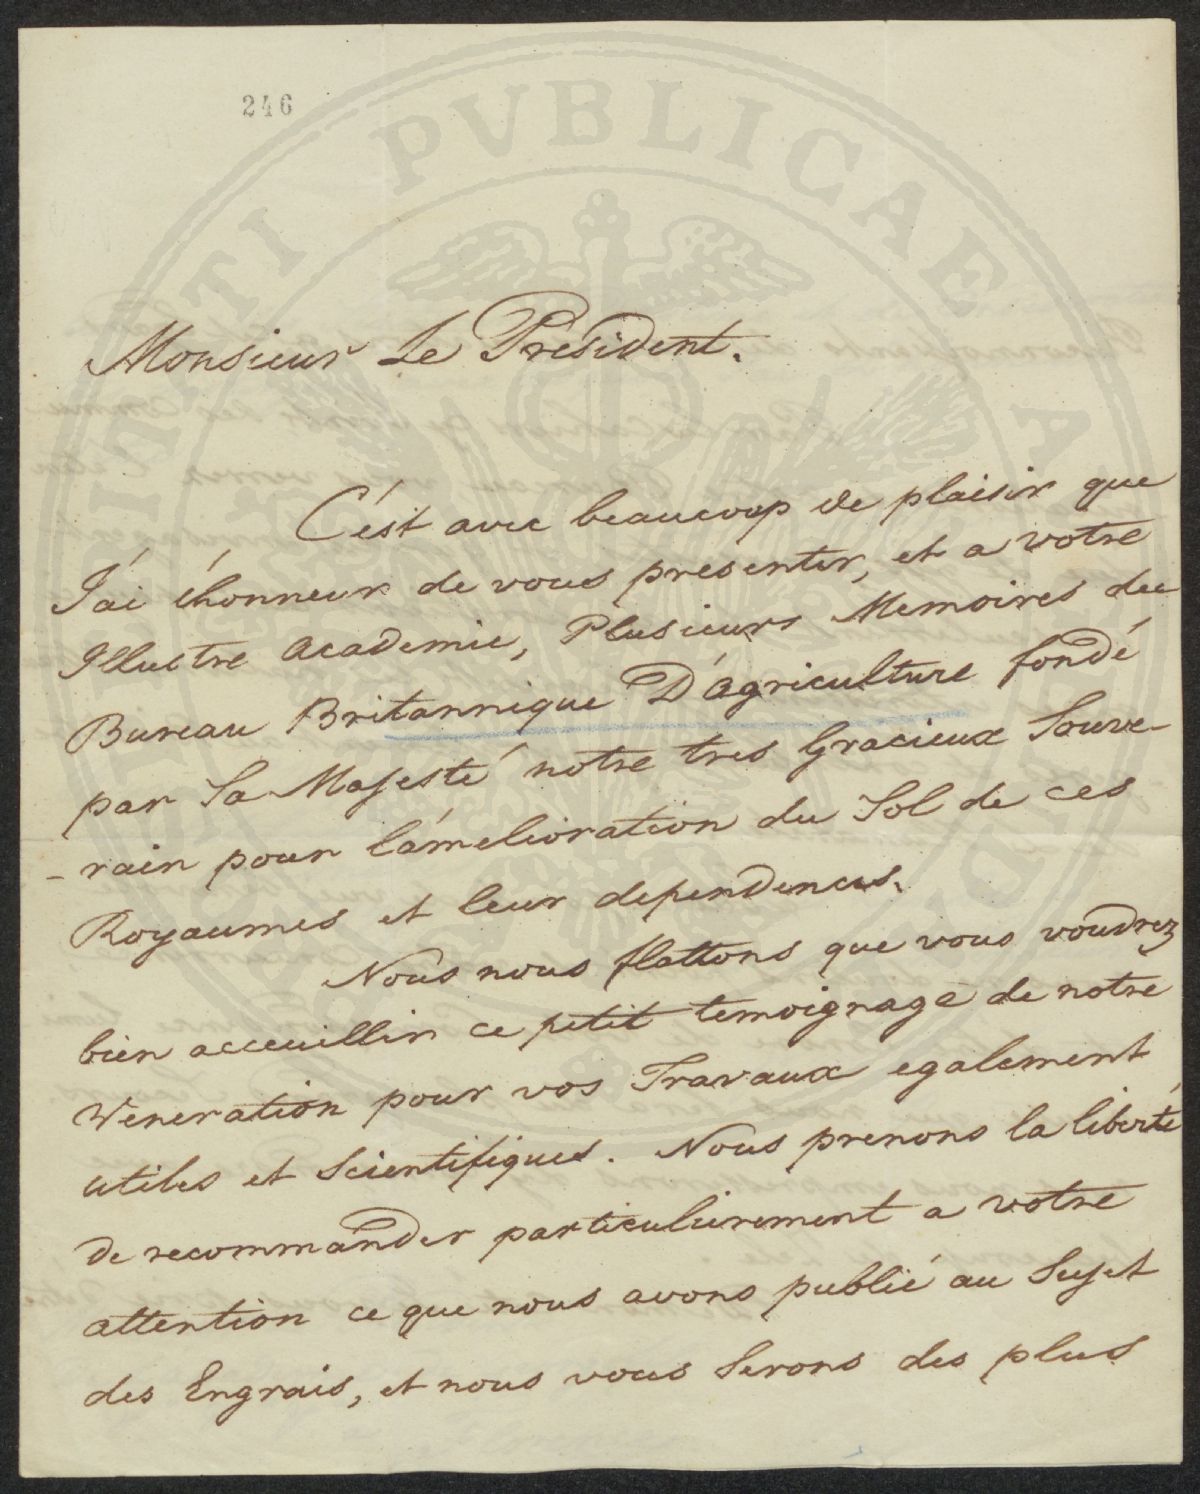 246
Monsieur Le President.
C'ést avec beaucoup de plaisir que
J'ai l'honneur de vous presenter, et a votre
Illustre Academie, Plusieurs Memoires du
Bureau Britannique D'agriculture fondé
par Sa Majesté notre tres Gracieux Souve-
-rain pour l'amelioration du Sol de ces
Royaumes et leur dependences.
Nous nous flattons que vous voudrez
bien acceuillir ce petit temoignage de notre
Veneration pour vos Travaux egalement
utiles et Scientifiques. Nous prenons la liberté
de recommander particulierement a votre
attention ce que nous avons publié au Sujet
des Engrais, et nous vous Serons des plus